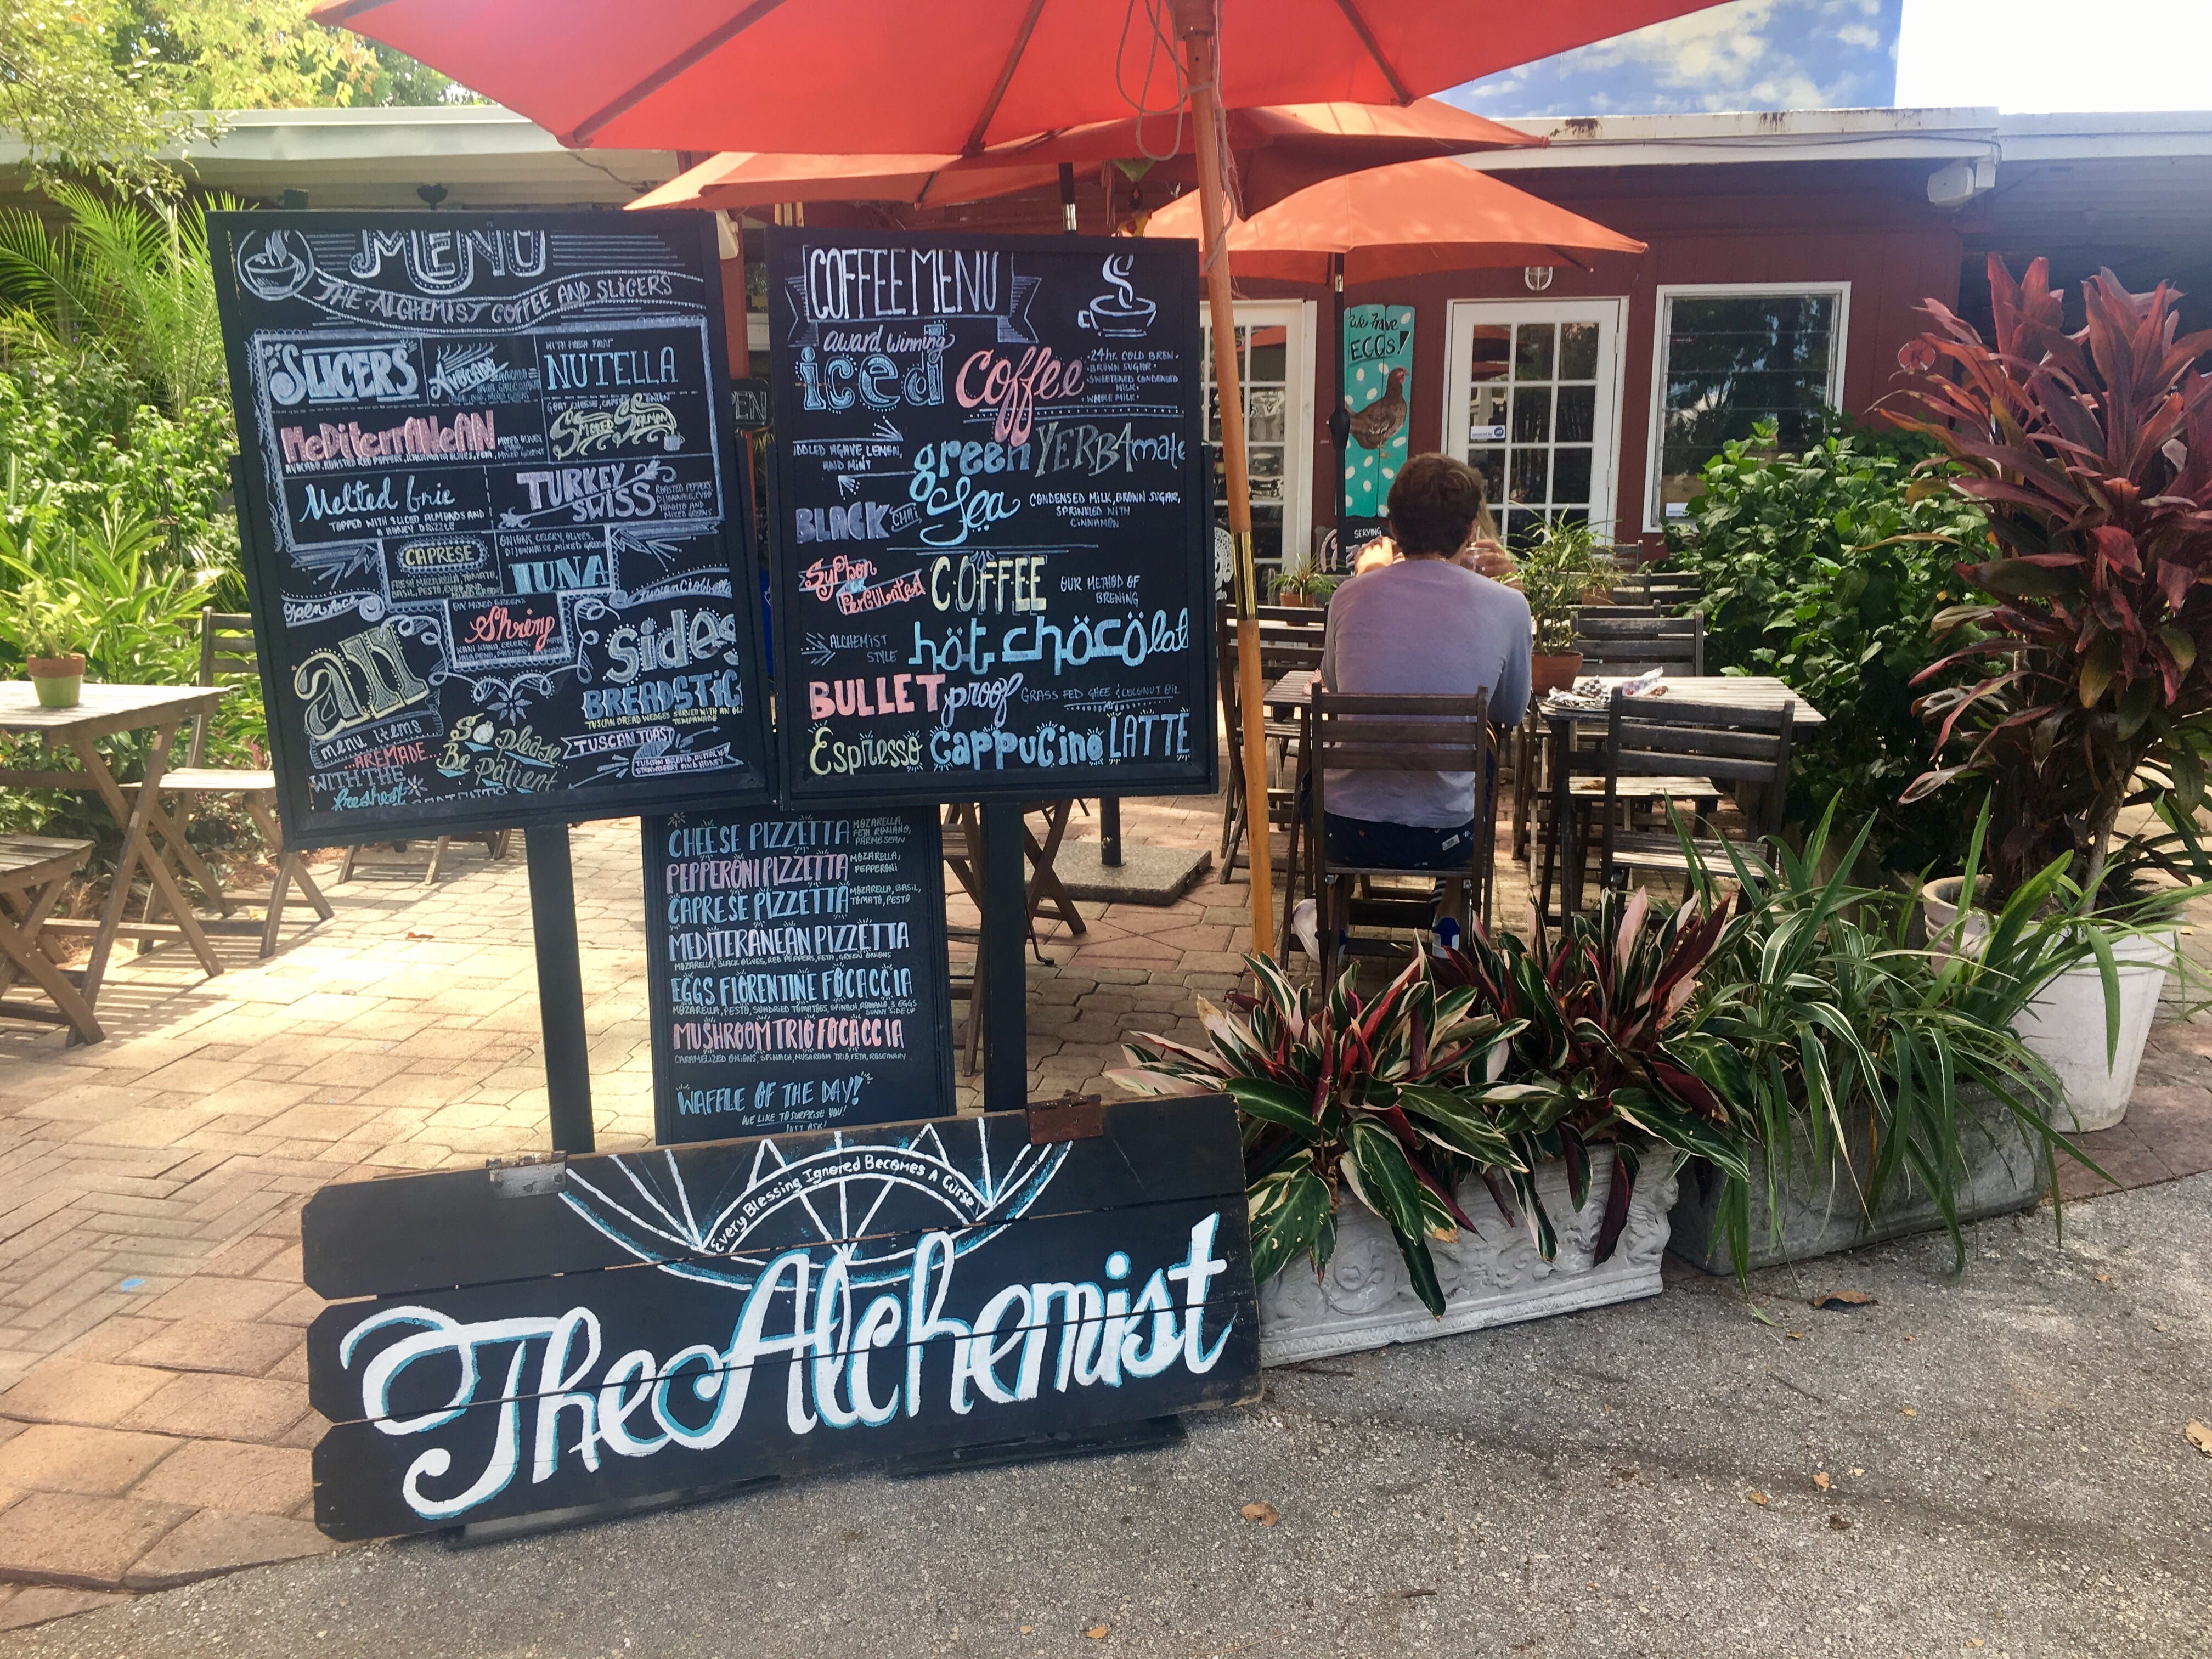 MENU
THE ALCHEMIST COFFEE AND SLICERS
SLICERS
Avocado
WITH FRESH FRUIT
NUTELLA
MEDiterrANeAN
SMOKED SALMON
Melted brie
TOPPED WITH SLICED ALMONDS AND
A HONEY DRIZZLE
TURKEY
SWISS
ROASTED PEPPERS,
TOMATO AND
MIXED GREENS
CAPRESE
FRESH MOZARELLA, TOMATO,
BASIL, PESTO, EVOO AND
ONIONS, CELERY, OLIVES,
DIJONNAISE, MIXED GREENS
TUNA
Openface
ON MIXED GREENS
Shrimp
all
menu items
ARE MADE
WITH THE
freshest
So please
Be patient
Sides
BREADSTIC
TUSCAN BREAD WEDGES SERVED WITH AN
TEMPANADE
TUSCAN TOAST
COFFEE MENU
award winning
iced Coffee
• 24hr. COLD BREW •
• BROWN SUGAR •
• SWEETENED CONDENSED
MILK •
• WHOLE MILK •
DDLED AGAVE, LEMON,
AND MINT
green YERBA mate
BLACK CHAI Tea
CONDENSED MILK, BROWN SUGAR,
SPRINKLED WITH
CINNAMON
Syphon
OR
Perculated
COFFEE
OUR METHOD OF
BREWING
ALCHEMIST
STYLE
höt chöcölat
BULLET proof
GRASS FED GHEE & COCONUT OIL
Espresso Cappucino LATTE
CHEESE PIZZETTA
MOZARELLA,
FETA, ROMANO,
PARMESEAN
PEPPERONI PIZZETTA
MOZARELLA,
PEPPERONI
CAPRESE PIZZETTA
MOZARELLA, BASIL,
TOMATO, PESTO
MEDITERANEAN PIZZETTA
MOZARELLA, BLACK OLIVES, RED PEPPERS, FETA, GREEN ONIONS
EGGS FlORENTINE FOCACCIA
MOZARELLA, PESTO, SUNDRIED TOMATOES, SPINACH, ROMANO, 3 EGGS
SUNNY SIDE UP
MUSHROOM TRIO FOCACCIA
CARAMELIZED ONIONS, SPINACH, MUSHROOM TRIO, FETA, ROSEMARY
WAFFLE OF THE DAY!
WE LIKE TO SURPRISE YOU!
JUST ASK!
Every Blessing Ignored Becomes A Curse
The Alchemist
We Have
EGGS!
SERVING